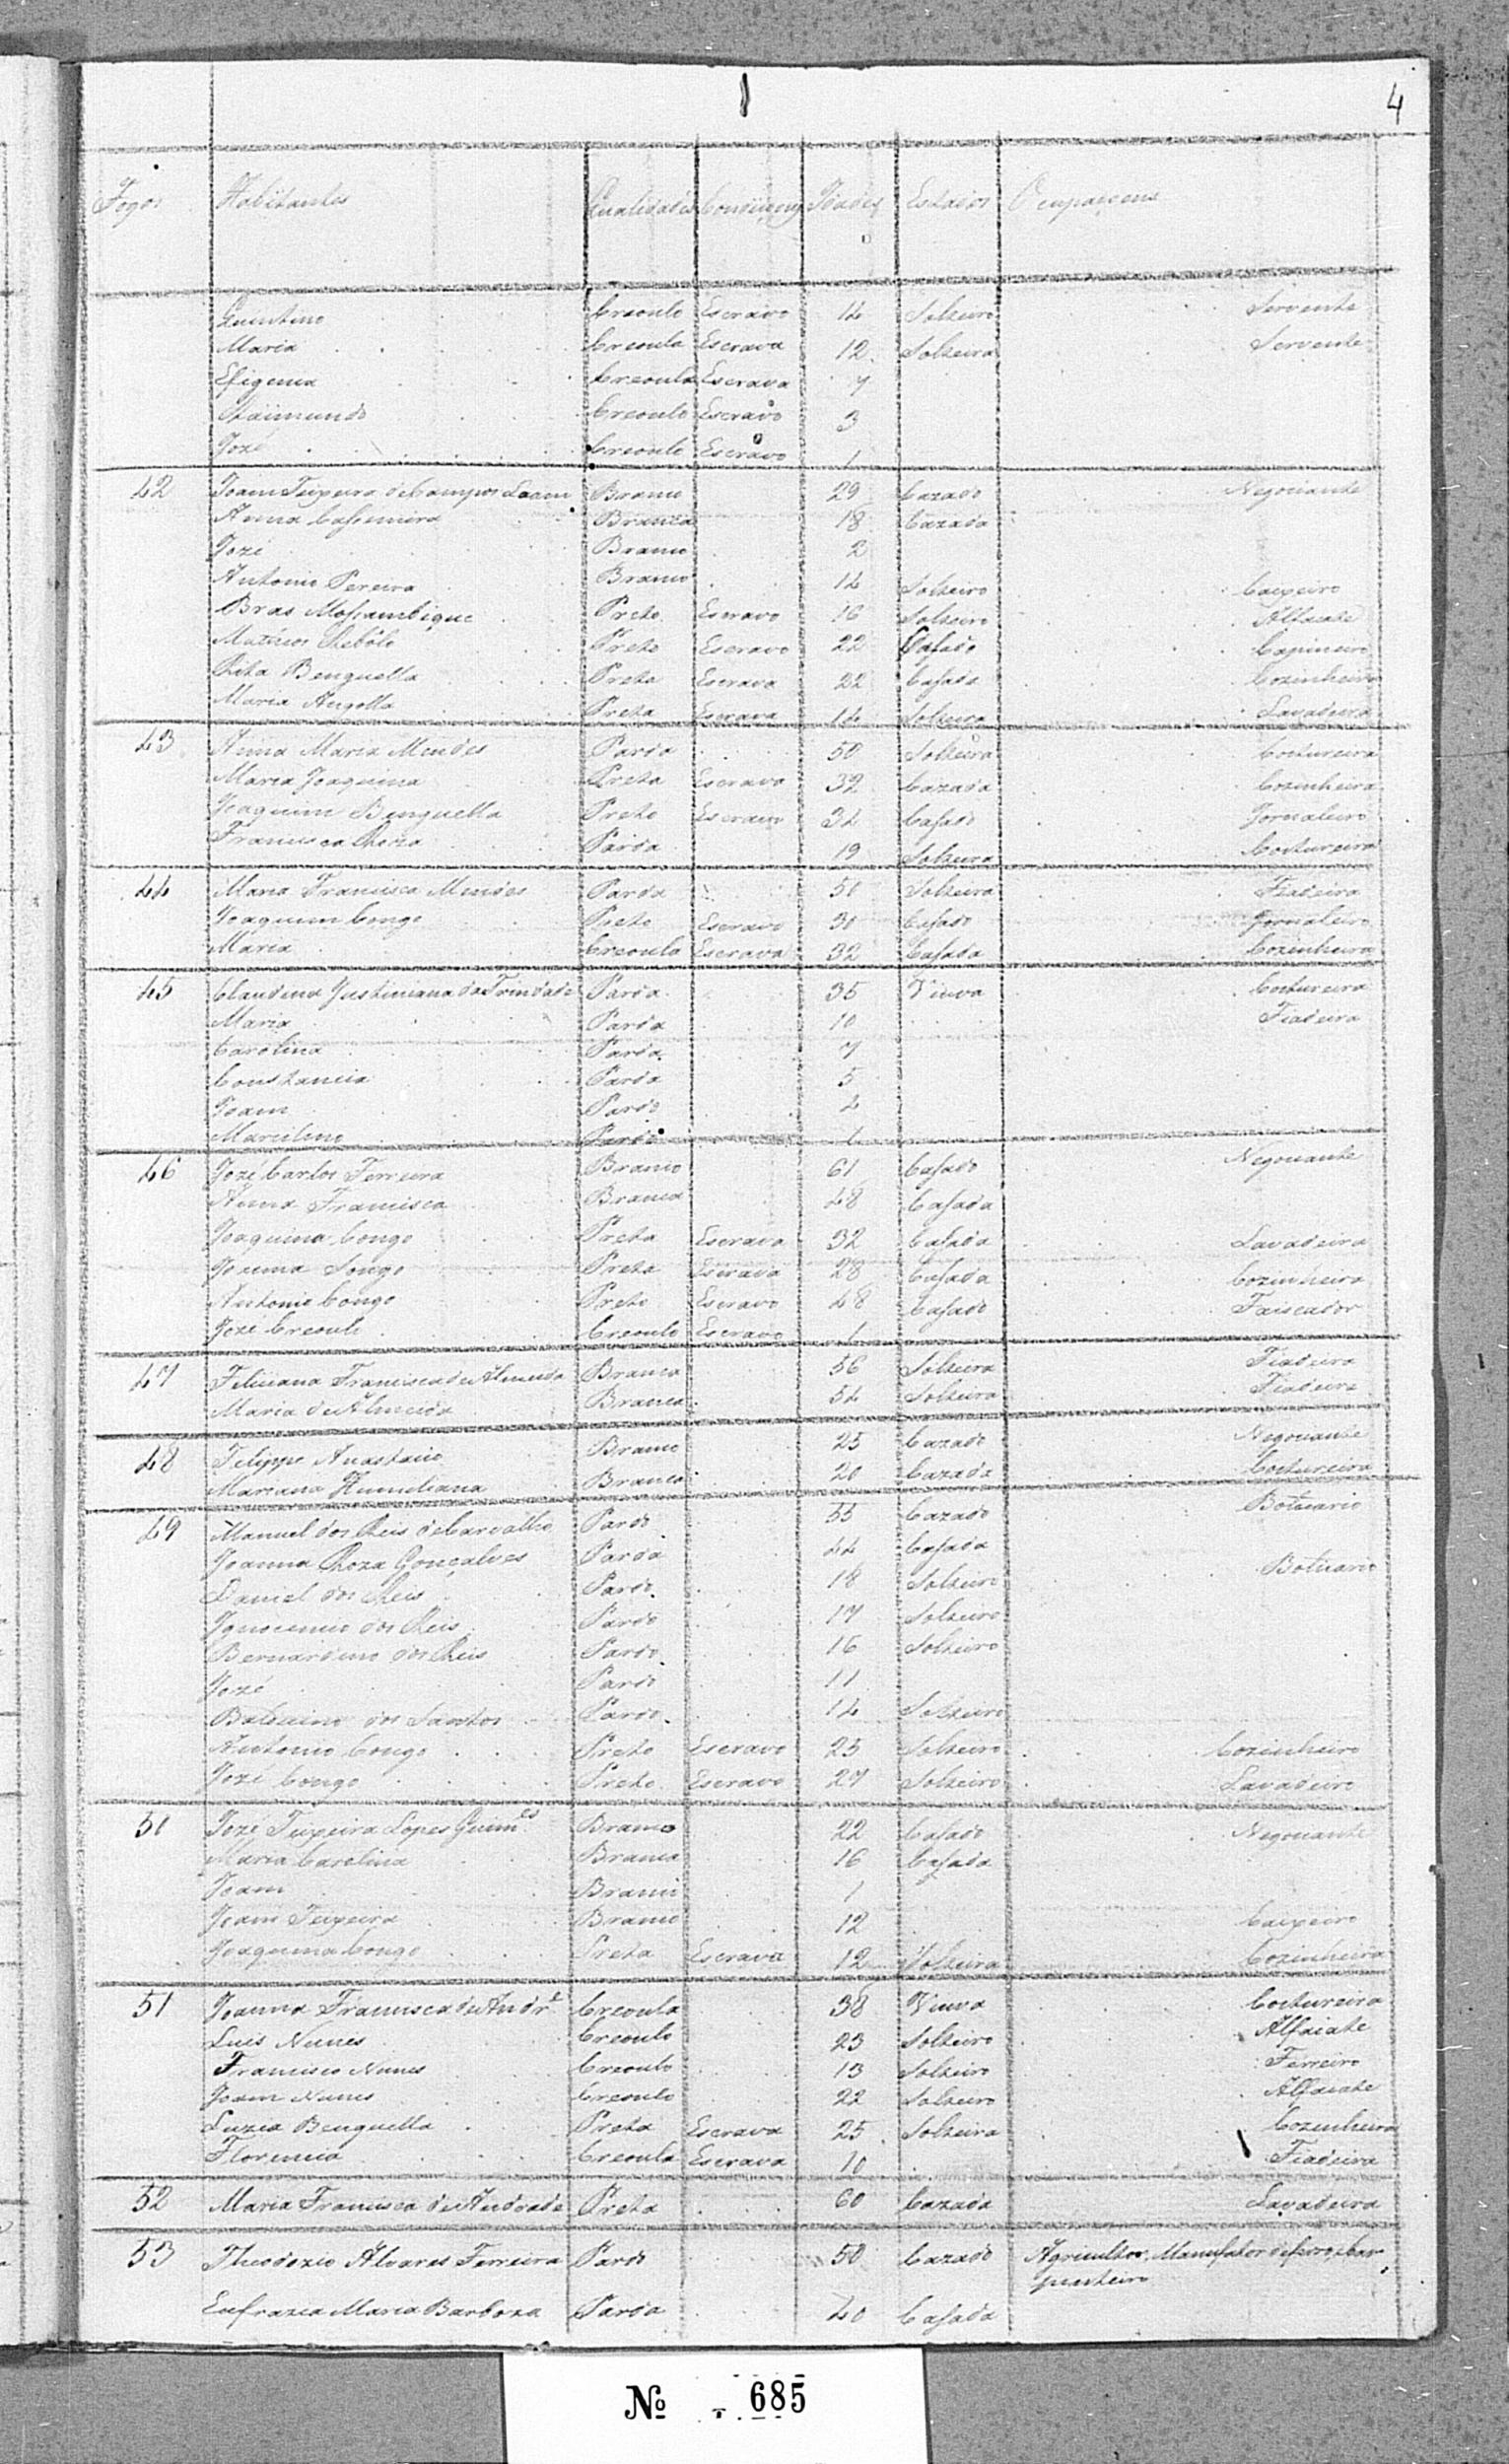 4
Fogos Habitantes Qualidades Condiçoens Idades Estados Ocupaçoens
Quintino Creoulo Escravo 14 Solteiro Servente
Maria Creoula Escrava 12 Solteira Servente
Efigenia Creoula Escrava 7
Raimundo Creoulo Escravo 3
Jozé Creoulo Escravo 1
42 Joam Teixeira de Campos Branco 29 Cazado Negociante
Anna Casemira Branca 18 Cazada
Jozé Branco 2
Antonio Pereira Branco 14 Solteiro Caixeiro
Bras Mossambique Preto Escravo 16 Solteiro Alfaiate
Matheos Rebôlo Preto Escravo 22 Casado Capineiro
Rita Benguella Preta Escrava 22 Casada Cozinheira
Maria Angolla Preta Escrava 14 Solteira Lavadeira
43 Anna Maria Mendes Parda 50 Solteira Costureira
Maria Joaquina Preta Escrava 32 Cazada Cozinheira
Joaquim Benguella Preto Escravo 34 Casado Jornaleiro
Francisca Roza Parda 19 Solteira Costureira
44 Maria Francisca Mendes Parda 50 Solteira Fiadeira
Joaquim Congo Preto Escravo 30 Casado Jornaleiro
Maria Creoula Escrava 32 Casada Cozinheira
45 Claudina Justiniana da Trindade Parda 35 Viuva Costureira
Maria Parda 10 Fiadeira
Carolina Parda 7
Constancia Parda 5
Joam Pardo 4
Marcelino Pardo 1
46 Jozé Carlos Ferreira Branco 61 Casado Negociante
Anna Francisca Branca 48 Casada
Joaquina Congo Preta Escrava 32 Casada Lavadeira
Songo Preta Escrava 28 Casada Cozinheira
Antonio Congo Preto Escravo 48 Casado Faiscador
Jozé Creoulo Creoulo Escravo 1
47 Feliciana Francisca de Almeida Branca 56 Solteira Fiadeira
Maria de Almeida Branca 54 Solteira Fiadeira
48 Felippe Anastacio Branco 25 Cazado Negociante
Mariana Humiliana Branca 20 Cazada Costureira
49 Manuel dos Reis de Carvalho Pardo 55 Cazado Boticario
Joanna Roza Gonçalves Parda 44 Casada
Daniel dos Reis Pardo 18 Solteiro Boticario
Ignocencio dos Reis Pardo 17 Solteiro
Bernardino dos Reis Pardo 16 Solteiro
Jozé Pardo 11
dos Santos Pardo 14 Solteiro
Antonio Congo Preto Escravo 25 Solteiro Cozinheiro
Jozé Congo Preto Escravo 27 Solteiro Lavadeiro
50 Jozé Teixeira Lopes Guim.es Branco 22 Casado Negociante
Maria Carolina Branca 16 Casada
Joam Branco 1
Joam Teixeira Branco 12 Caixeiro
Joaquina Congo Preta Escrava 12 Solteira Cozinheira
51 Joanna Francisca de Andr.e Creoula 38 Viuva Costureira
Luis Nunes Creoulo 23 Solteiro Alfaiate
Francisco Nunes Creoulo 13 Solteiro Ferreiro
Joam Nunes Creoulo 22 Solteiro Alfaiate
Luzia Benguella Preta Escrava 25 Solteira Cozinheira
Florencia Creoula Escrava 10 Fiadeira
52 Maria Francisca de Andrade Preta 60 Cazada Lavadeira
53 Theodozio Alvares Ferreira Pardo 50 Cazado Agricultor, Manufator de ferro, Car-
pinteiro
Eufrazia Maria Barboza Parda 40 Casada
Nº 685